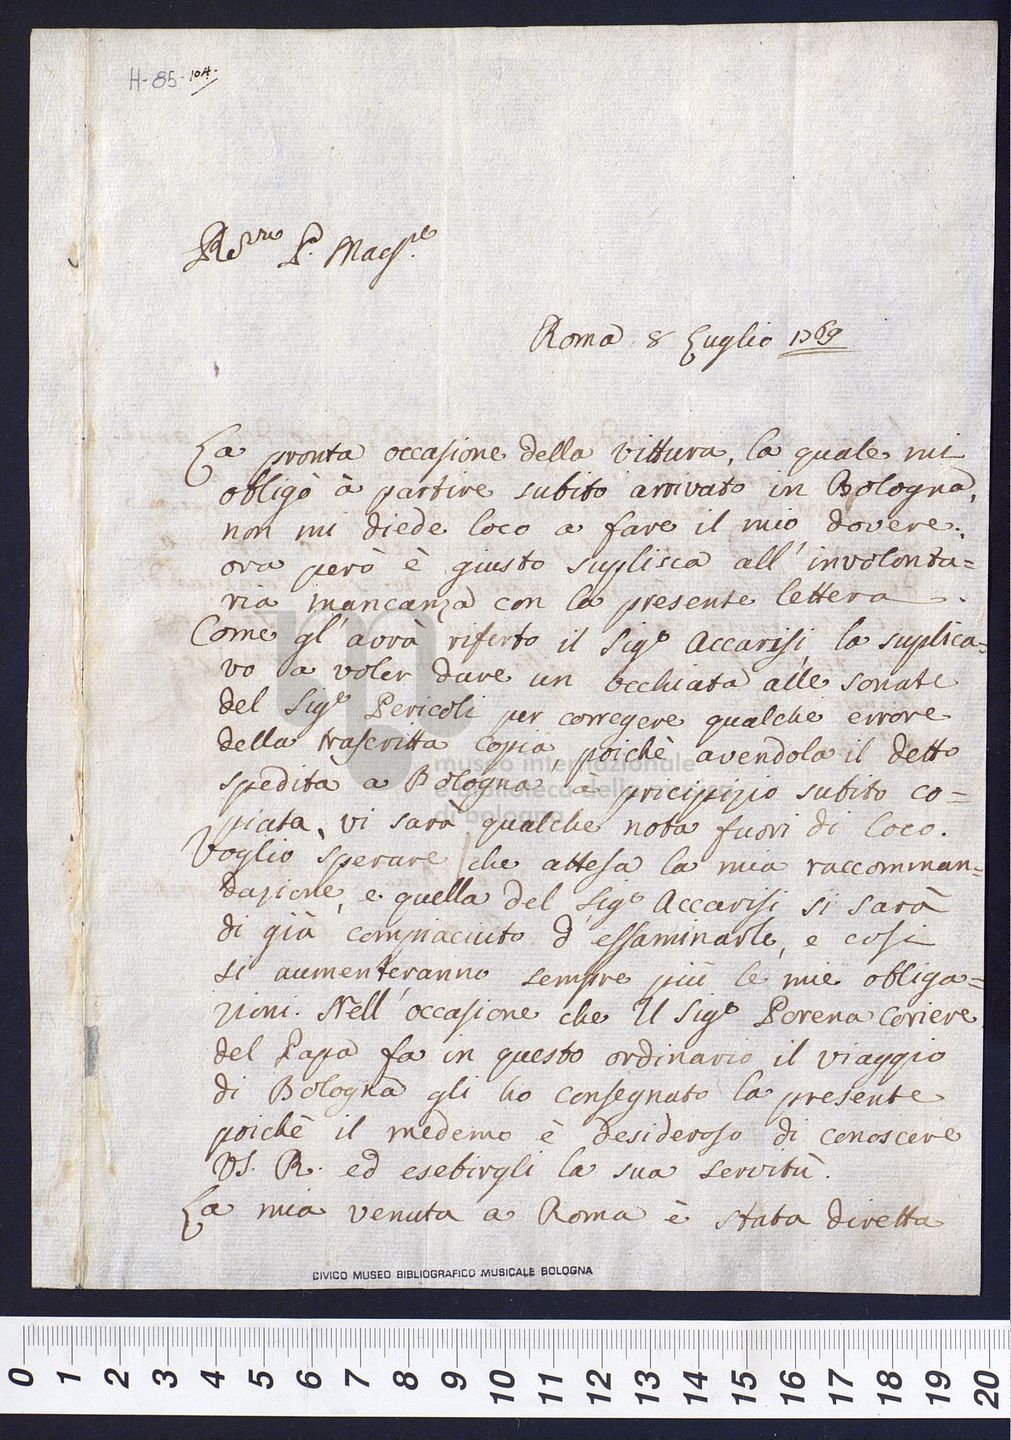 H-85-104.
R.mo P. Maes.
Roma 8 Luglio 1769
La pronta occasione della vittura, la quale mi
obligò à partire subito arrivato in Bologna,
non mi diede loco a fare il mio dovere.
ora però è giusto suplisca all'involonta=
ria mancanza con la presente lettera.
Come gl'avrà riferto il Sig.e Accarisi, la suplica=
vo a voler dare un occhiata alle sonate
del Sig.e Pericoli per corregere qualche errore
della trascritta copia, poichè avendola il detto
spedita a Bologna, à pricipizio subito co=
piata, vi sarà qualche nota fuori di loco.
Voglio sperare che attesa la mia raccomman=
dazione, e quella del Sig.e Accarisi si sarà
di già compiaciuto d'essaminarle, e così
si aumenteranno sempre più le mie obliga=
zioni. Nell'occasione che Il Sig.e Porena coriere
del Papa fa in questo ordinario il viaggio
di Bologna gli ho consegnato la presente
poichè il medemo è desideroso di conoscere
VS. R. ed esebirgli la sua servitù.
La mia venuta a Roma è stata diretta
museo internazionale
e biblioteca della musica
di bologna
CIVICO MUSEO BIBLIOGRAFICO MUSICALE BOLOGNA
0 1 2 3 4 5 6 7 8 9 10 11 12 13 14 15 16 17 18 19 20